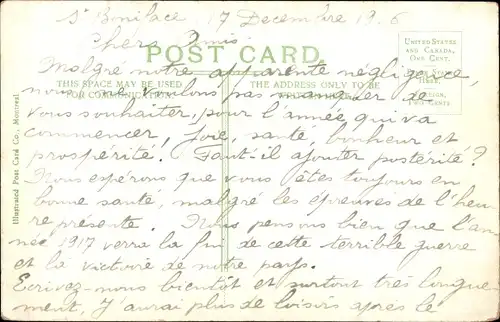 St Boniface, 17 Decembre 19 6
Chers Amis
POST CARD
UNITED STATES
AND CANADA,
ONE CENT.
TWO CENTS
Malgré notre apparente négligence,
THIS SPACE MAY BE USED
FOR COMMUNICATION
THE ADDRESS ONLY TO BE
nous ne voulons pas manquer de
vous souhaiter, pour l'année qui va
commencer, Joie, santé, bonheur et
prospérité. Faut-il ajouter postérité?
Nous espérons que vous êtes toujours en
bonne santé, malgré les épreuves de l'heu-
re présente. Nous pensons bien que l'an-
née 1917 verra la fin de cette terrible guerre
et la victoire de notre pays.
Ecrivez-nous bientôt et surtout très longue-
ment, J'aurai plus de loisirs après le
Illustrated Post Card Co., Montreal